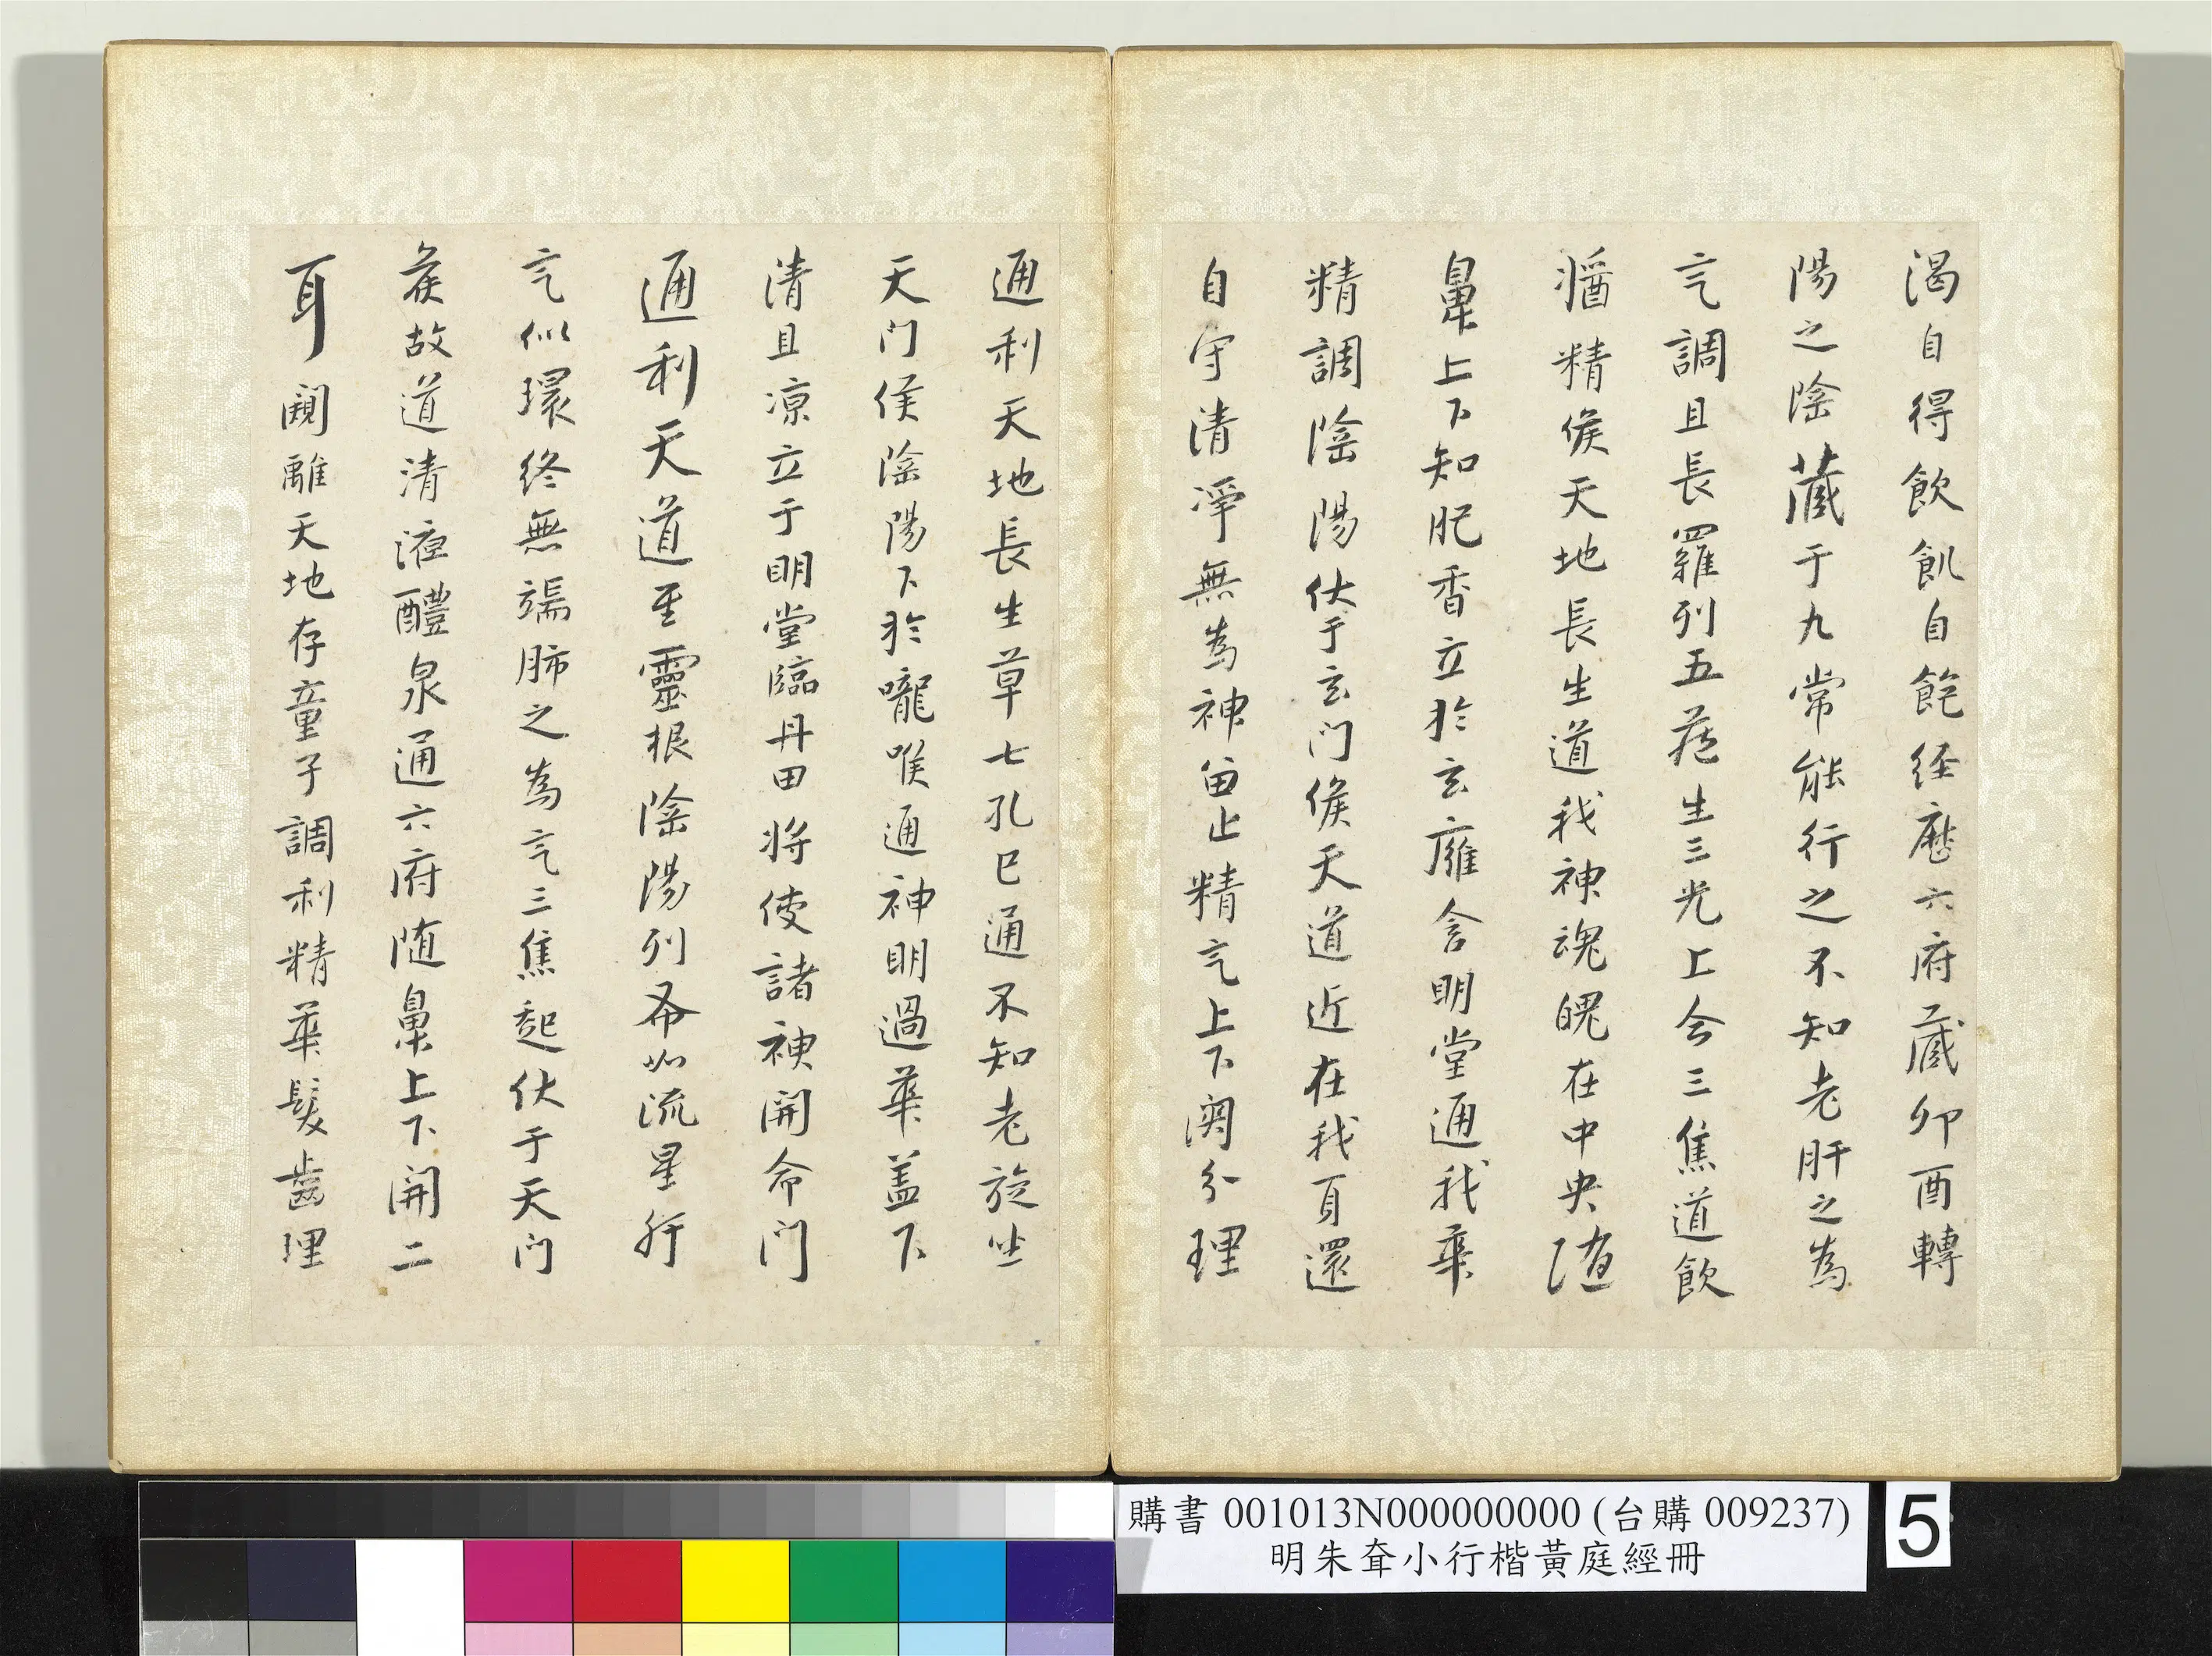 渴自得飲飢自飽經歷六府藏卯酉轉
陽之陰藏于九常能行之不知老肝之為
氣調且長羅列五藏生三光上合三焦道飲
醬精候天地長生道我神魂魄在中央隨
鼻上下知肥香立於玄廱含明堂通我華
精調陰陽伏于玄門候天道近在我頁還
自守清淨無為神留止精氣上下關分理
通利天地長生草七孔已通不知老旋坐
天門侯陰陽下於嚨喉通神明過華蓋下
清且涼立于明堂臨丹田將使諸神開命門
通利天道至靈根陰陽列布如流星肝
氣似環終無端肺之為氣三焦起伏于天門
侯故道清液醴泉通六府隨鼻上下開二
耳闚離天地存童子調利精華髮齒理
購書 001013N000000000 (台購 009237)
明朱耷小行楷黃庭經冊
5